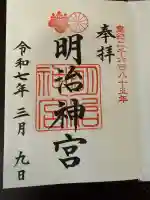 皇紀二千六百八十五年
奉拝
明治神宮
令和七年三月九日